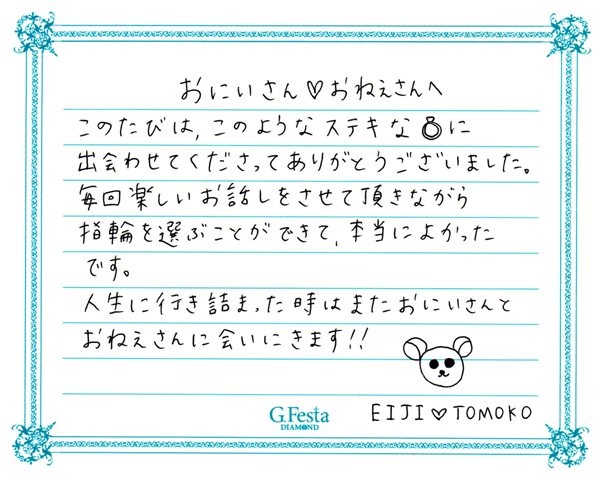 おにいさん♡おねえさんへ
このたびは、このようなステキな💍に
出会わせてくださってありがとうございました。
毎回楽しいお話しをさせて頂きながら
指輪を選ぶことができて、本当によかった
です。
人生に行き詰まった時はまたおにいさんと
おねえさんに会いにきます!!
G.Festa
DIAMOND
EIJI♡TOMOKO